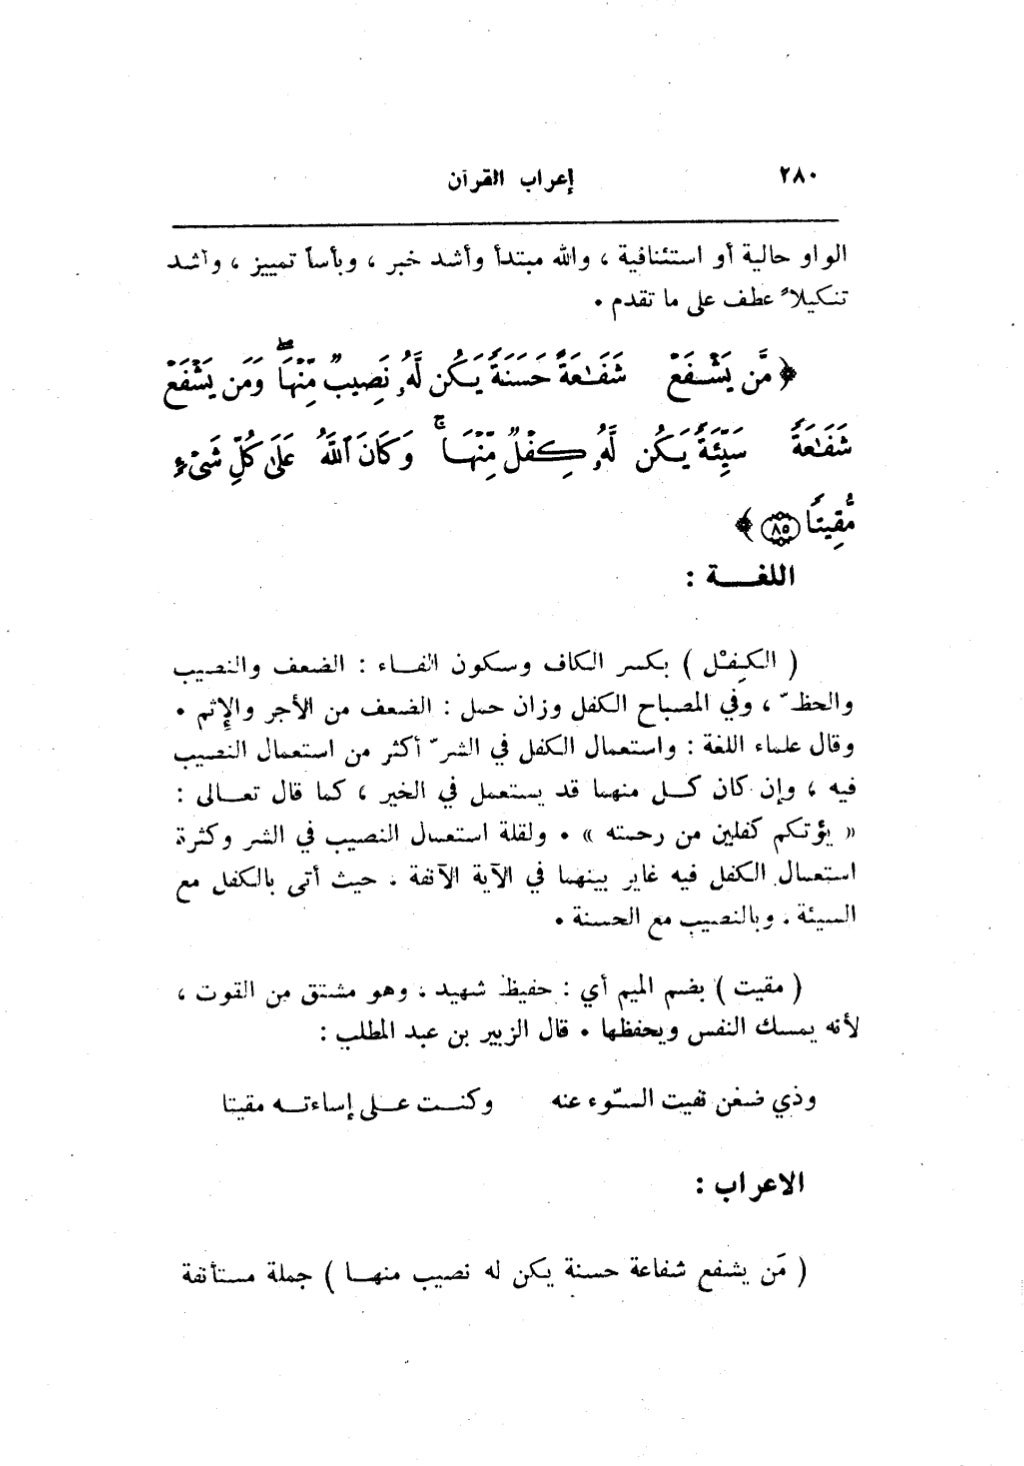 ٢٨٠
إعراب القرآن
الواو حالية أو استئنافية ، والله مبتدأ وأشد خبر ، وبأساً تمييز ، وأشد
تنكيلاً عطف على ما تقدم .
﴿ مَّن يَشْفَعْ شَفَـٰعَةً حَسَنَةً يَكُن لَّهُۥ نَصِيبٌ مِّنْهَا ۖ وَمَن يَشْفَعْ
شَفَـٰعَةً سَيِّئَةً يَكُن لَّهُۥ كِفْلٌ مِّنْهَا ۗ وَكَانَ ٱللَّهُ عَلَىٰ كُلِّ شَىْءٍ
مُّقِيتًا ﴿٨٥﴾ ﴾
اللغـــة :
( الكِفْل ) بكسر الكاف وسكون الفـاء : الضعف والنصيب
والحظّ ، وفي المصباح الكفل وزان حمل : الضعف من الأجر والإثم .
وقال علماء اللغة : واستعمال الكفل في الشرّ أكثر من استعمال النصيب
فيه ، وإن كان كـل منهما قد يستعمل في الخير ، كما قال تعـالى :
« يؤتكم كفلين من رحمته » . ولقلة استعمال النصيب في الشر وكثرة
استعمال الكفل فيه غاير بينهما في الآية الآنفة . حيث أتى بالكفل مع
السيئة . وبالنصيب مع الحسنة .
( مقيت ) بضم الميم أي : حفيظ شهيد . وهو مشتق من القوت ،
لأنه يمسك النفس ويحفظها . قال الزبير بن عبد المطلب :
وذي ضغن نفيت السّوء عنه وكنـت عـلى إساءتـه مقيتا
الاعراب :
( مَن يشفع شفاعة حسنة يكن له نصيب منهـا ) جملة مستأنفة